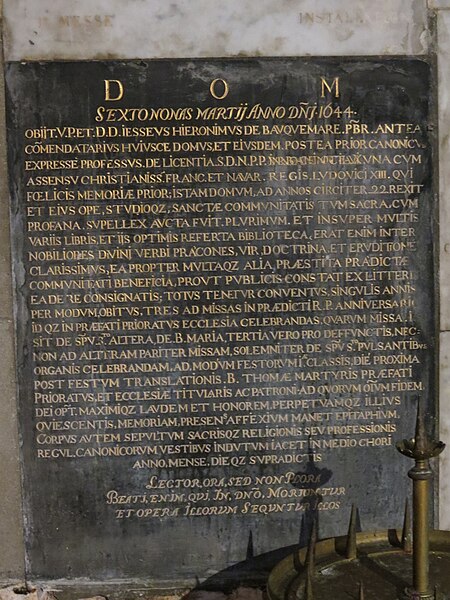 MESSE INSTALL
D O M
SEXTO NONAS MARTIJ ANNO DÑJ. 1644.
OBIJT. V.P.ET. D.D. IESSEVS HIERONIMVS DE BAVQVEMARE. PBR. ANTEA
CŌMENDATARIVS HVIVSCE DOMVS, ET EIVSDEM. POSTEA PRIOR, CANONICVS
EXPRESSE PROFESSVS. DE LICENTIA. S.D.N.P.P. VNA CVM
ASSENSV CHRISTIANISS. FRANC. ET NAVAR. REGIS. LVDOVICI XIII. QVI
FŒLICIS MEMORIÆ PRIOR; ISTAM DOMVM, AD ANNOS CIRCITER 22. REXIT
ET EIVS OPE, STVDIOQZ, SANCTÆ COMMVNITATIS TVM SACRA. CVM
PROFANA, SVPELLEX AVCTA FVIT. PLVRIMVM. ET INSVPER MVLTIS
VARIIS LIBRIS, ET IIS OPTIMIS REFERTA BIBLIOTECA, ERAT ENIM INTER
NOBILIORES DIVINJ VERBI PRÆCONES, VIR, DOCTRINA, ET ERVDITIONE
CLARISSIMVS; EA PROPTER MVLTAQZ ALIA PRÆSTITA PRÆDICTÆ
COMMVNITATI BENEFICIA, PROVT PVBLICIS CONSTAT EX LITTERIS
EA DE RE CONSIGNATIS; TOTVS TENETVR CONVENTVS, SINGVLIS ANNIS
PER MODVM, OBITVS, TRES AD MISSAS IN PRÆDICTI R.P. ANNIVERSARIO
ID QZ IN PRÆFATI PRIORATVS ECCLESIA CELEBRANDAS. QVARVM MISSA. I
SIT DE SPV. Sto ALTERA, DE. B. MARIA, TERTIA VERO PRO DEFFVNCTIS. NEC
NON AD ALTERAM PARITER MISSAM, SOLEMNITER DE SPV Sto PVLSANTIBVS
ORGANIS CELEBRANDAM, AD. MODVM FESTORVM I. CLASSIS, DIE PROXIMA
POST FESTVM TRANSLATIONIS. B. THOMÆ MARTYRIS PRÆFATI
PRIORATVS, ET ECCLESIÆ TITVLARIS AC PATRONI AD QVORVM FIDEM.
DEI OPT. MAXIMIQZ LAVDEM ET HONOREM, PERPETVAMQZ ILLIVS
QVIESCENTIS, MEMORIAM, PRESENS AFFEXIVM MANET EPITAPHIVM.
CORPVS AVTEM SEPVLTVM SACRISQZ RELIGIONIS SEV PROFESSIONIS
REGVL. CANONICORVM VESTIBVS INDVTVM IACET IN MEDIO CHORI
ANNO, MENSE, DIE QZ SVPRADICTIS
LECTOR, ORA, SED NON PLORA
BEATI, ENIM, QVI IN, DNO. MORIVNTVR
ET OPERA ILLORVM SEQVNTVR ILLOS